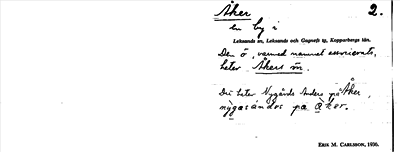 Åker 2.
en by i
Leksands sn, Leksands och Gagnefs tg, Kopparbergs län.
Den ö, varmed namnet associerats,
heter Åkerö n.
Där heter Nygårds Anders på Åker,
nỳgasándəs pæ åker.
ERIK M. CARLSSON, 1930.